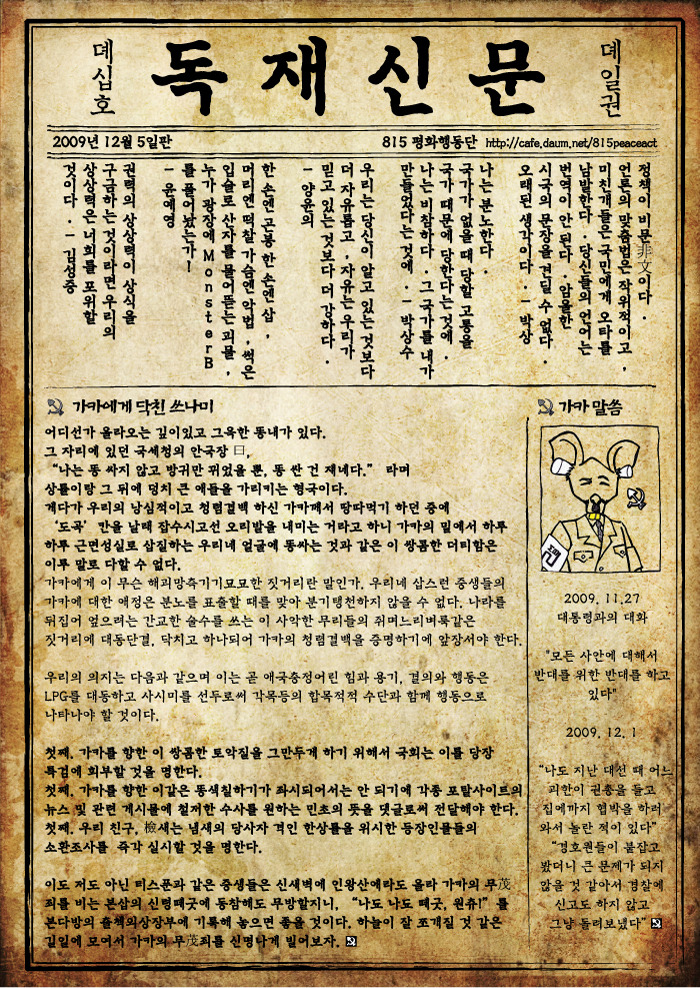 뎨십호
독재신문
뎨일권
2009년 12월 5일판
815 평화행동단 http://cafe.daum.net/815peaceact
정책이 비문非文이다.
언론의 맞춤법은 작위적이고,
미친개들은 국민에게 오타를
남발한다. 당신들의 언어는
번역이 안 된다. 암울한
시국의 문장을 견딜 수 없다.
오래된 생각이다. - 박상
나는 분노한다.
국가가 없을 때 당할 고통을
국가 때문에 당한다는 것에.
나는 비참하다. 그 국가를 내가
만들었다는 것에. - 박상수
우리는 당신이 알고 있는 것보다
더 자유롭고, 자유는 우리가
믿고 있는 것보다 더 강하다.
- 양윤의
한 손엔 곤봉 한 손엔 삽,
머리엔 떡찰 가슴엔 악법, 썩은
입술로 산자를 물어뜯는 괴물,
누가 광장에 MonsterB
를 풀어놨는가!
- 윤예영
권력의 상상력이 상식을
구금하는 것이라면 우리의
상상력은 너희를 포위할
것이다. - 김성중
가카에게 닥친 쓰나미
어디선가 올라오는 깊이있고 그윽한 동내가 있다.
그 자리에 있던 국세청의 안국장 曰,
“나는 똥 싸지 않고 방귀만 뀌었을 뿐, 똥 싼 건 쟤네다.” 라며
상률이랑 그 뒤에 덩치 큰 애들을 가리키는 형국이다.
게다가 우리의 낭심적이고 청렴결백 하신 가카께서 땅따먹기 하던 중에
‘도곡’ 만을 날래 잡수시고선 오리발을 내미는 거라고 하니 가카의 밑에서 하루
하루 근면성실로 삽질하는 우리네 얼굴에 똥싸는 것과 같은 이 쌍콤한 더티함은
이루 말로 다할 수 없다.
가카에게 이 무슨 해괴망측기기묘묘한 짓거리란 말인가. 우리네 삽스런 중생들의
가카에 대한 애정은 분노를 표출할 때를 맞아 분기탱천하지 않을 수 없다. 나라를
뒤집어 엎으려는 간교한 술수를 쓰는 이 사악한 무리들의 쥐며느리벼룩같은
짓거리에 대동단결, 닥치고 하나되어 가카의 청렴결백을 증명하기에 앞장서야 한다.
우리의 의지는 다음과 같으며 이는 곧 애국충정어린 힘과 용기, 결의와 행동은
LPG를 대동하고 사시미를 선두로써 각목등의 합목적적 수단과 함께 행동으로
나타나야 할 것이다.
첫째. 가카를 향한 이 쌍콤한 토악질을 그만두게 하기 위해서 국회는 이를 당장
특검에 회부할 것을 명한다.
첫째. 가카를 향한 이같은 똥색칠하기가 좌시되어서는 안 되기에 각종 포탈사이트의
뉴스 및 관련 게시물에 철저한 수사를 원하는 민초의 뜻을 댓글로써 전달해야 한다.
첫째. 우리 친구, 檢새는 냄새의 당사자 격인 한상률을 위시한 등장인물들의
소환조사를 즉각 실시할 것을 명한다.
이도 저도 아닌 티스푼과 같은 중생들은 신새벽에 인왕산에라도 올라 가카의 무茂
죄를 비는 본삽의 신령떼굿에 동참해도 무방할지니, “나도 나도 떼굿, 원츄!” 를
본다방의 출첵의상장부에 기록해 놓으면 좋을 것이다. 하늘이 잘 쪼개질 것 같은
길일에 모여서 가카의 무茂죄를 신명나게 빌어보자.
가카 말씀
2009. 11.27
대통령과의 대화
"모든 사안에 대해서
반대를 위한 반대를 하고
있다"
2009. 12. 1
“나도 지난 대선 때 어느
괴한이 권총을 들고
집에까지 협박을 하러
와서 놀란 적이 있다”
“경호원들이 붙잡고
봤더니 큰 문제가 되지
않을 것 같아서 경찰에
신고도 하지 않고
그냥 돌려보냈다”